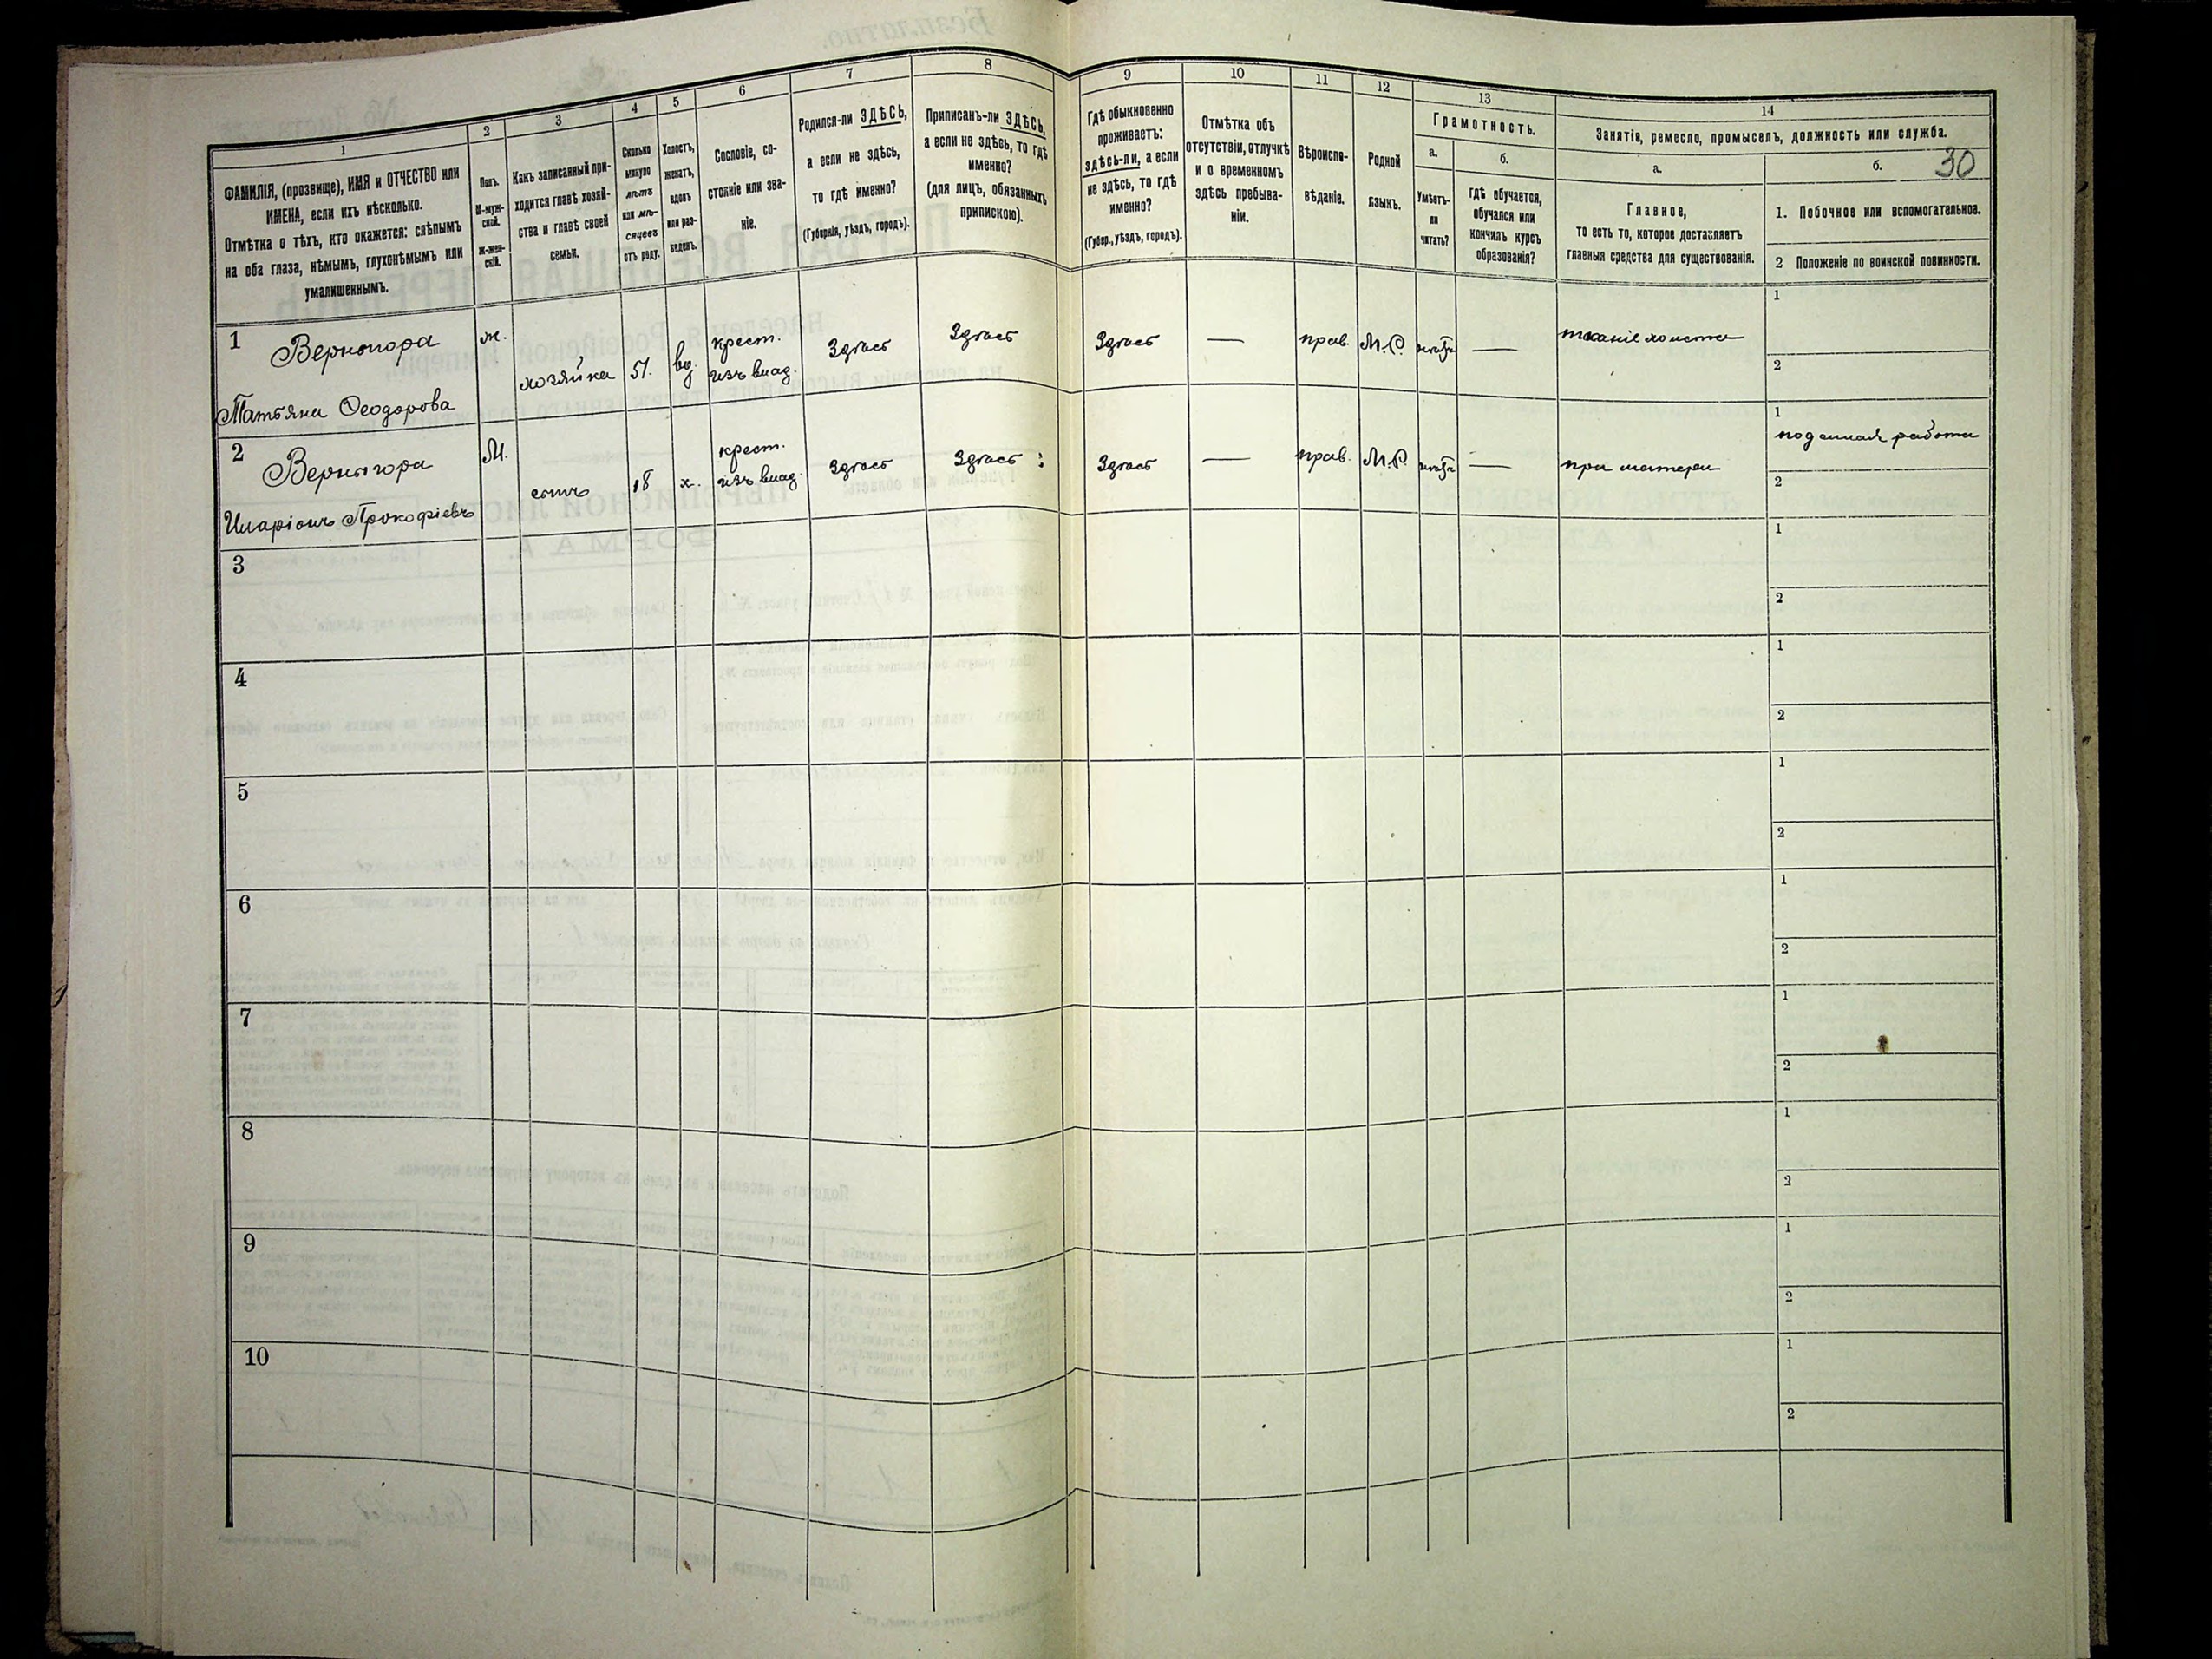 1
2
3
4
5
6
7
8
9
10
11
12
13
14
ФАМИЛІЯ, (прозвище), ИМЯ и ОТЧЕСТВО или
ИМЕНА, если ихъ нѣсколько.
Отмѣтка о тѣхъ, кто окажется: слѣпымъ
на оба глаза, нѣмымъ, глухонѣмымъ или
умалишеннымъ.
Полъ.
М-муж-
ской.
Ж-жен-
скій.
Какъ записанный при-
ходится главѣ хозяй-
ства и главѣ своей
семьи.
Сколько
минуло
лѣтъ
или мѣ-
сяцевъ
отъ роду.
Холостъ,
женатъ,
вдовъ
или раз-
веденъ.
Сословіе, со-
стояніе или зва-
ніе.
Родился-ли ЗДѢСЬ,
а если не здѣсь,
то гдѣ именно?
(Губернія, уѣздъ, городъ).
Приписанъ-ли ЗДѢСЬ,
а если не здѣсь, то гдѣ
именно?
(для лицъ, обязанныхъ
припискою).
Гдѣ обыкновенно
проживаетъ:
здѣсь-ли, а если
не здѣсь, то гдѣ
именно?
(Губер., уѣздъ, городъ).
Отмѣтка объ
отсутствіи, отлучкѣ
и о временномъ
здѣсь пребыва-
ніи.
Вѣроиспо-
вѣданіе.
Родной
языкъ.
Грамотность.
а.
Умѣетъ-
ли
читать?
б.
Гдѣ обучается,
обучался или
кончилъ курсъ
образованія?
Занятія, ремесло, промыселъ, должность или служба.
а.
Главное,
то есть то, которое доставляетъ
главныя средства для существованія.
б.
30
1. Побочное или вспомогательное.
2 Положеніе по воинской повинности.
1
Вернигора
Татьяна Ѳеодорова
ж.
хозяйка
51.
вд.
крест.
изъ влад.
Здѣсь
Здѣсь
Здѣсь
—
прав.
М.Р.
—
тканіе холста
1
2
2
Вернигора
Иларіонъ Прокофіевъ
М.
сынъ
18
х.
крест.
изъ влад.
Здѣсь
Здѣсь
Здѣсь
—
прав.
М.Р.
—
при матери
1
поденная работа
2
3
1
2
4
1
2
5
1
2
6
1
2
7
1
2
8
1
2
9
1
2
10
1
2